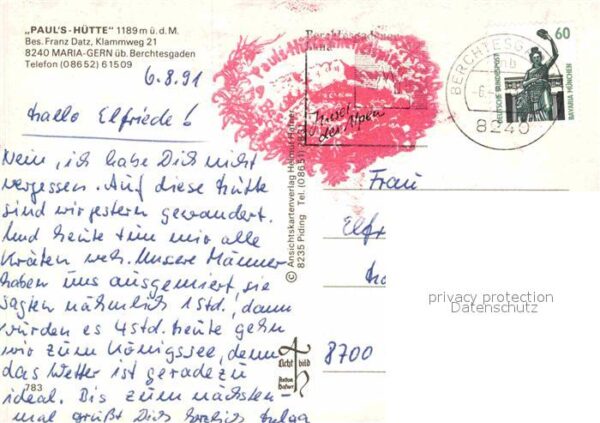 „PAUL'S-HÜTTE" 1189 m ü. d. M.
Bes. Franz Datz, Klammweg 21
8240 MARIA-GERN üb. Berchtesgaden
Telefon (0 86 52) 6 15 09
6.8.91
Hallo Elfriede
Nein, ich habe Dich nicht
vergessen. Auf diese Hütte
sind wir gestern gewandert.
Und heute tun mir alle
Kräten weh. Unsere Männer
haben uns ausgemiert, sie
sagten nähmlich 1 Std., dann
würden es 4 Std. heute gehn
wir zum Königssee, denn
das Wetter ist geradezu
ideal. Bis zum nächsten-
mal grüßt Dich herzlich Helga
783
© Ansichtskartenverlag
8235 Piding Tel. (0 86 51)
Berchtesgadener
Insel
der Alpen
BERCHTESGA
mb
8240
60
DEUTSCHE BUNDESPOST
BAVARIA MÜNCHEN
Frau
Elfr
8700
Licht bild
privacy protection
Datenschutz